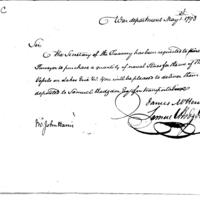 C
War department May 1st 1798
Sir
The Secretary of the Treasury has been requested to
Purveyor to purchase a quantity of naval Stores for the use of the
Vessels on Lakes Erie &c. You will be pleased to deliver them
deposited to Samuel Hodgdon Esqr for transportation
James McHenry
Samuel Hodgdon
Mr John Harris